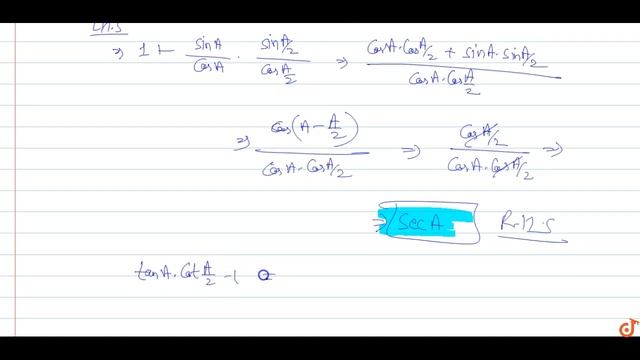 L.H.S
⇒ 1 + sinA/cosA · sinA/2 / cosA/2 ⇒ cosA·cosA/2 + sinA·sinA/2 / cosA·cosA/2
⇒ cos(A − A/2) / cosA·cosA/2 ⇒ cosA/2 / cosA·cosA/2 ⇒
⇒ secA R.H.S
tanA·cotA/2 −1